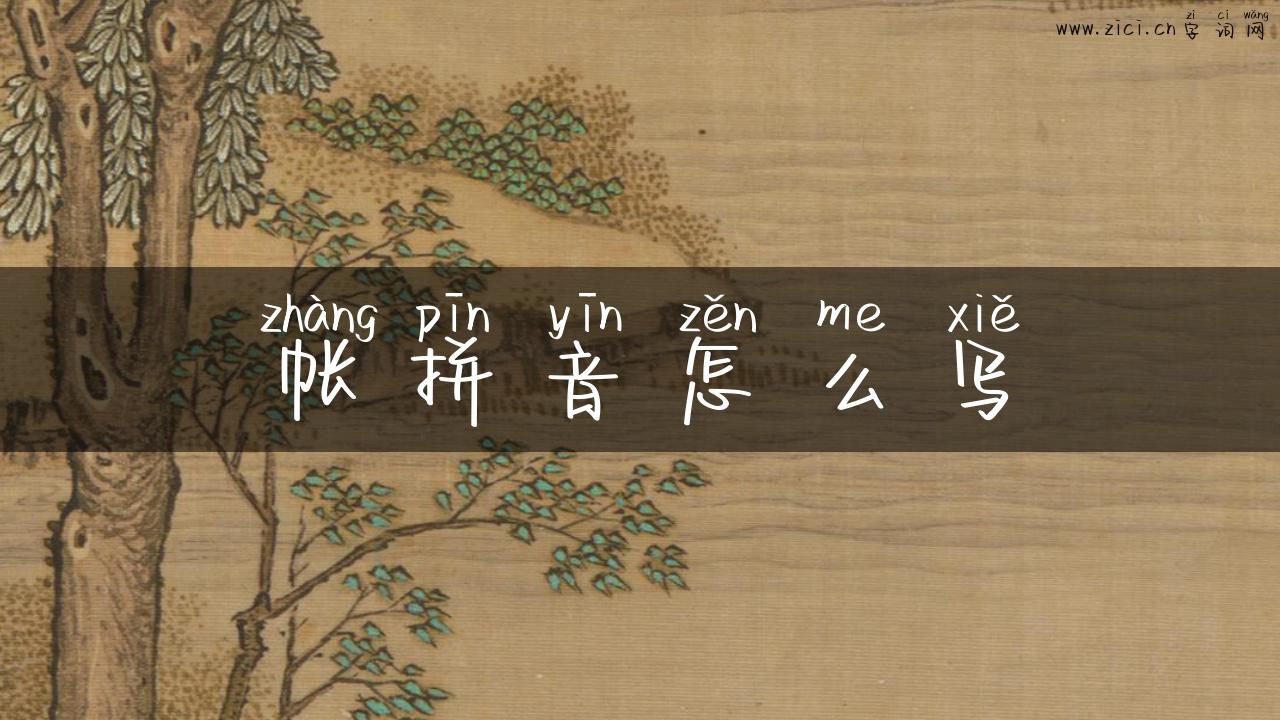 zì cí wǎng
www.zici.cn 字词网
zhàng pīn yīn zěn me xiě
帐拼音怎么写